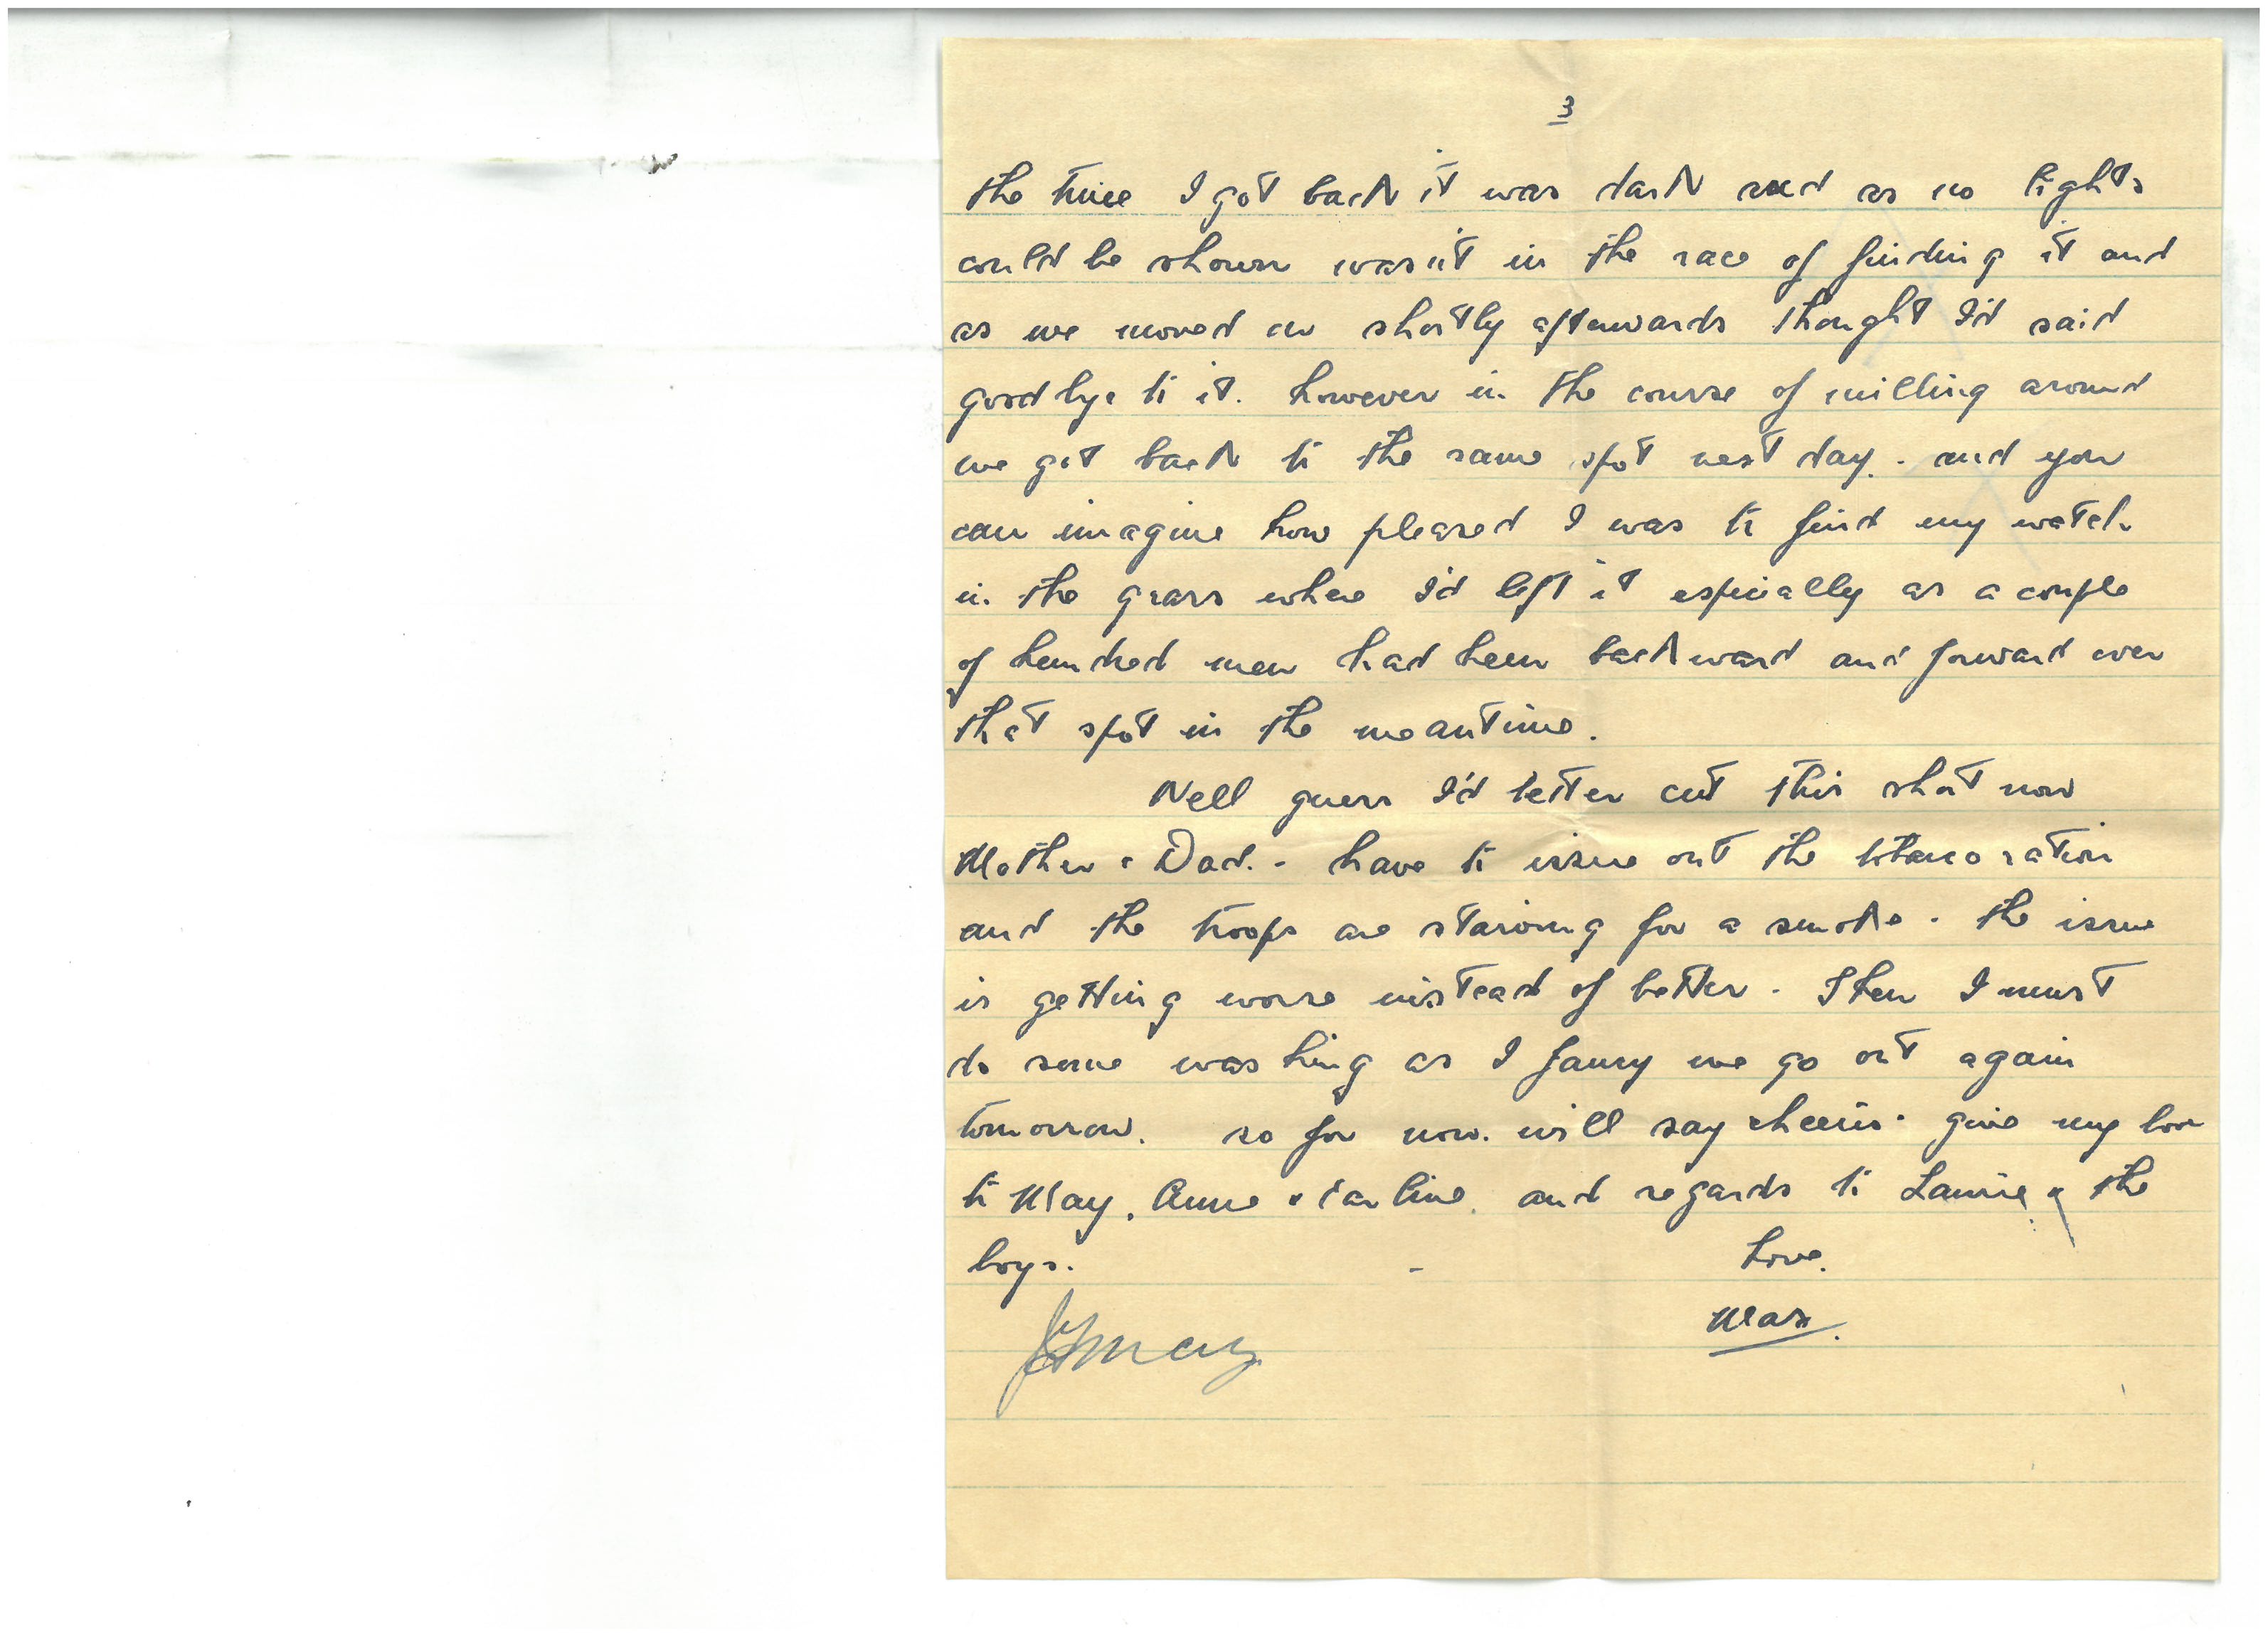 3
the time I got back it was dark and as no lights
could be shown wasn't in the race of finding it and
as we moved on shortly afterwards thought I'd said
goodbye to it. however in the course of milling around
we got back to the same spot next day. and you
can imagine how pleased I was to find my watch
in the grass where I'd left it especially as a couple
of hundred men had been backward and forward over
that spot in the meantime.
Well guess I'd better cut this short now
Mother & Dad. - have to issue out the tobacco ration
and the troops are starving for a smoke. the issue
is getting worse instead of better. Then I must
do some washing as I fancy we go out again
tomorrow. so for now. will say cheerio. give my love
to May, Anne & Carline. and regards to Laurie & the
boys. - Love.
Max.